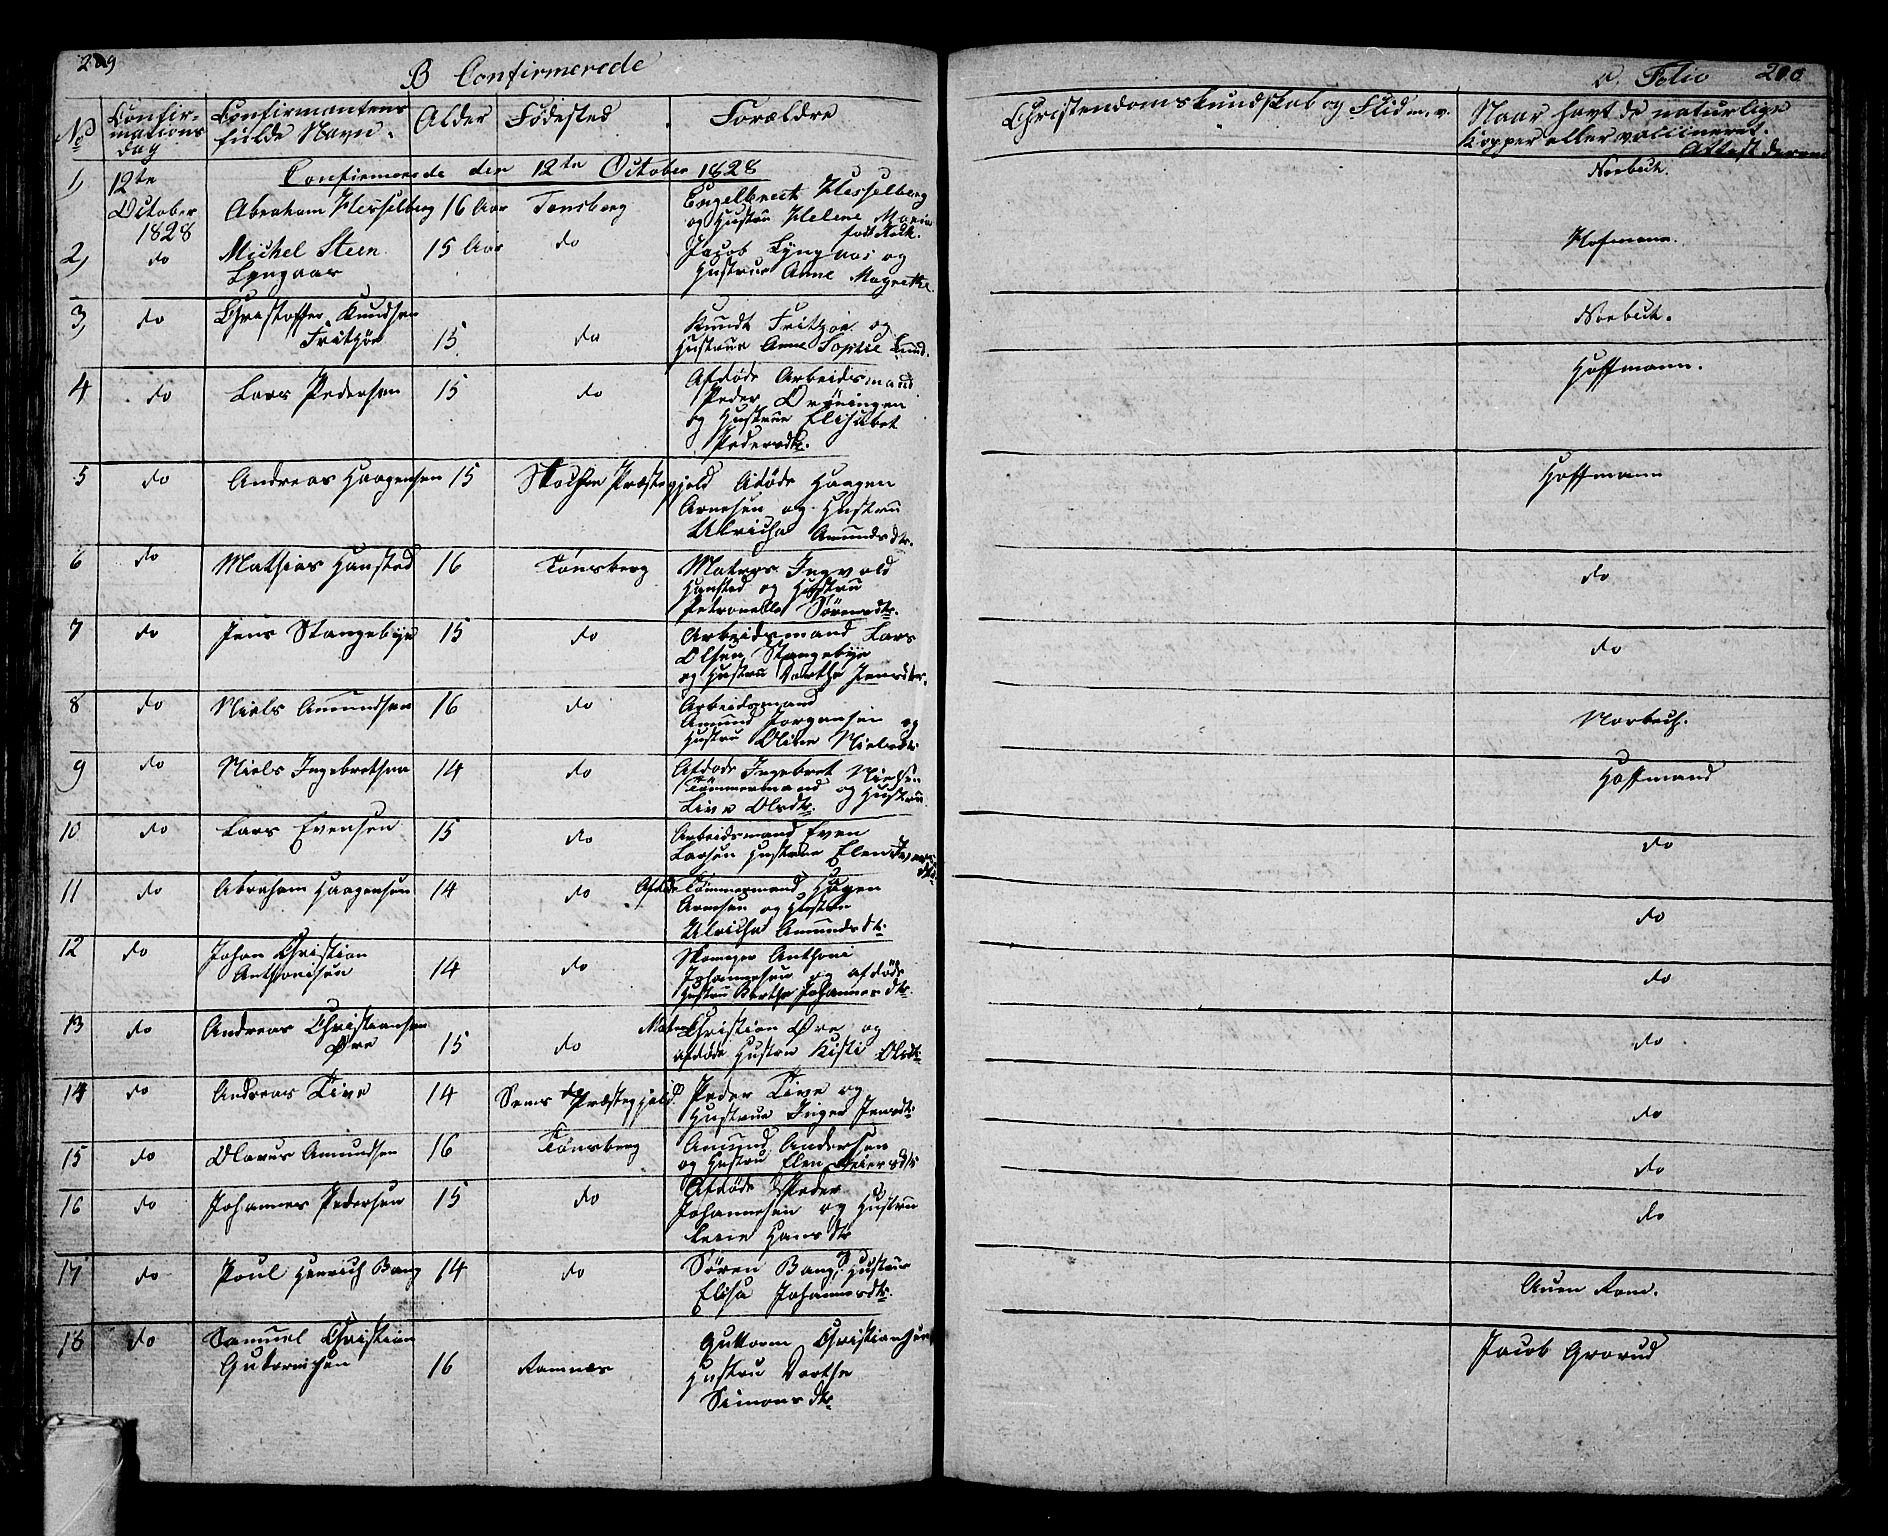 B Confirmerede
No
Confir-
mations
dag
Confirmantens
fulde Navn.
Alder
Fødested
Forældre
Confirmerede den 12te October 1828
1, 12te October 1828 Abraham Hesselberg 16 Aar Tønsberg Engelbrecht Hesselberg
og Hustru Helene Maria
født
2, do Michel Steen 15 Aar do Jacob Lyngaas og
Lyngaas Hustrue Anne Magrethe
3, do Christoffer Knudsen Knudt Fritzøe og
Fritzøe 15 do Hustrue Anne Sophie Lund.
4 do Lars Pedersen 15 do Afdøde Arbeidsmand
Peder
og Hustrue Elisabet
Pedersdtr.
5 do Andreas Haagensen 15 Præstegjeld Afdøde Haagen
Arnesen og Hustru
Ulricha Amundsdtr.
6 do Mathias Hansted 16 Tønsberg Matros Ingvald
Hansted og Hustru
Petronelle Sørensdtr.
7 do Jens Stangebye 15 do Arbeidsmand Lars
Olsen Stangebye
og Hustru Dorthe Jensdtr.
8 do Niels Amundsen 16 do Arbeidsmand
Amund Jørgensen og
Hustru Oline Nielsdtr
9 do Niels Ingebretsen 14 do Afdøde Ingebret Nielsen
Tømmermand og Hustru
Live Olsdtr.
10 do Lars Evensen 15 do Arbeidsmand Even
Larsen Hustrue Elen
11 do Abraham Haagensen 14 do Afdøde Tømmermand Hagen
Arnesen og Hustru
Ulricha Amundsdtr.
12 do Johan Christian Skomager Anthoni
Anthonisen 14 do Johannesen og afdøde
Hustru Berthe Johannesdtr.
13 do Andreas Christiansen Matros Christian Øre og
Øre 15 do afdøde Hustru Kisti Olsdtr.
14 do Andreas Tive 14 Sems Præstegjeld Peder Tive og
Hustrue Inger Jensdtr
15 do Olavus Amundsen 16 Tønsberg Amund Andersen
og Hustru Elen
16 do Johannes Pedersen 15 do Afdøde Peder
Johannesen og Hustru
Hansdtr
17 do Poul Henrich Bang 14 do Søren Bang, Hustrue
Elisa Johannesdtr.
18 do Samuel Christian Guttorm Christiansen
Gutormsen 16 Ramnes Hustru Dorthe
Simonsdtr.
Folio 200
Christendomskundskab og Flid m. v.
Naar havt de naturlige
Kopper eller vacsineret.
Attest derom
Norbech.
Hofmann.
Norbech.
Hoffmann.
Hoffmann
do
do
Norbech.
Hoffmand
do
do
do
do
do
do
do
Jacob Grorud